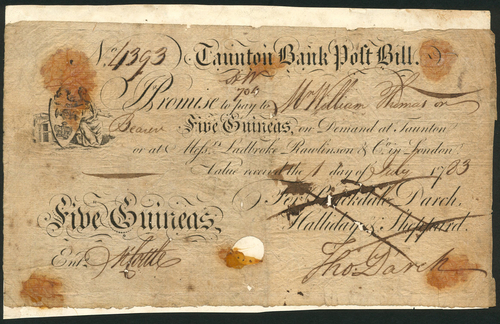 No. 4393 Taunton Bank Post Bill.
I Promise to pay to Mr William Thomas or
Bearer Five Guineas, on Demand at Taunton
or at Messrs. Ladbroke Rawlinson & Co. in London
Value received the 1 day of July 1783
For Darch.
Five Guineas. Halliday & Sheppard.
Entd. Thos. Darch